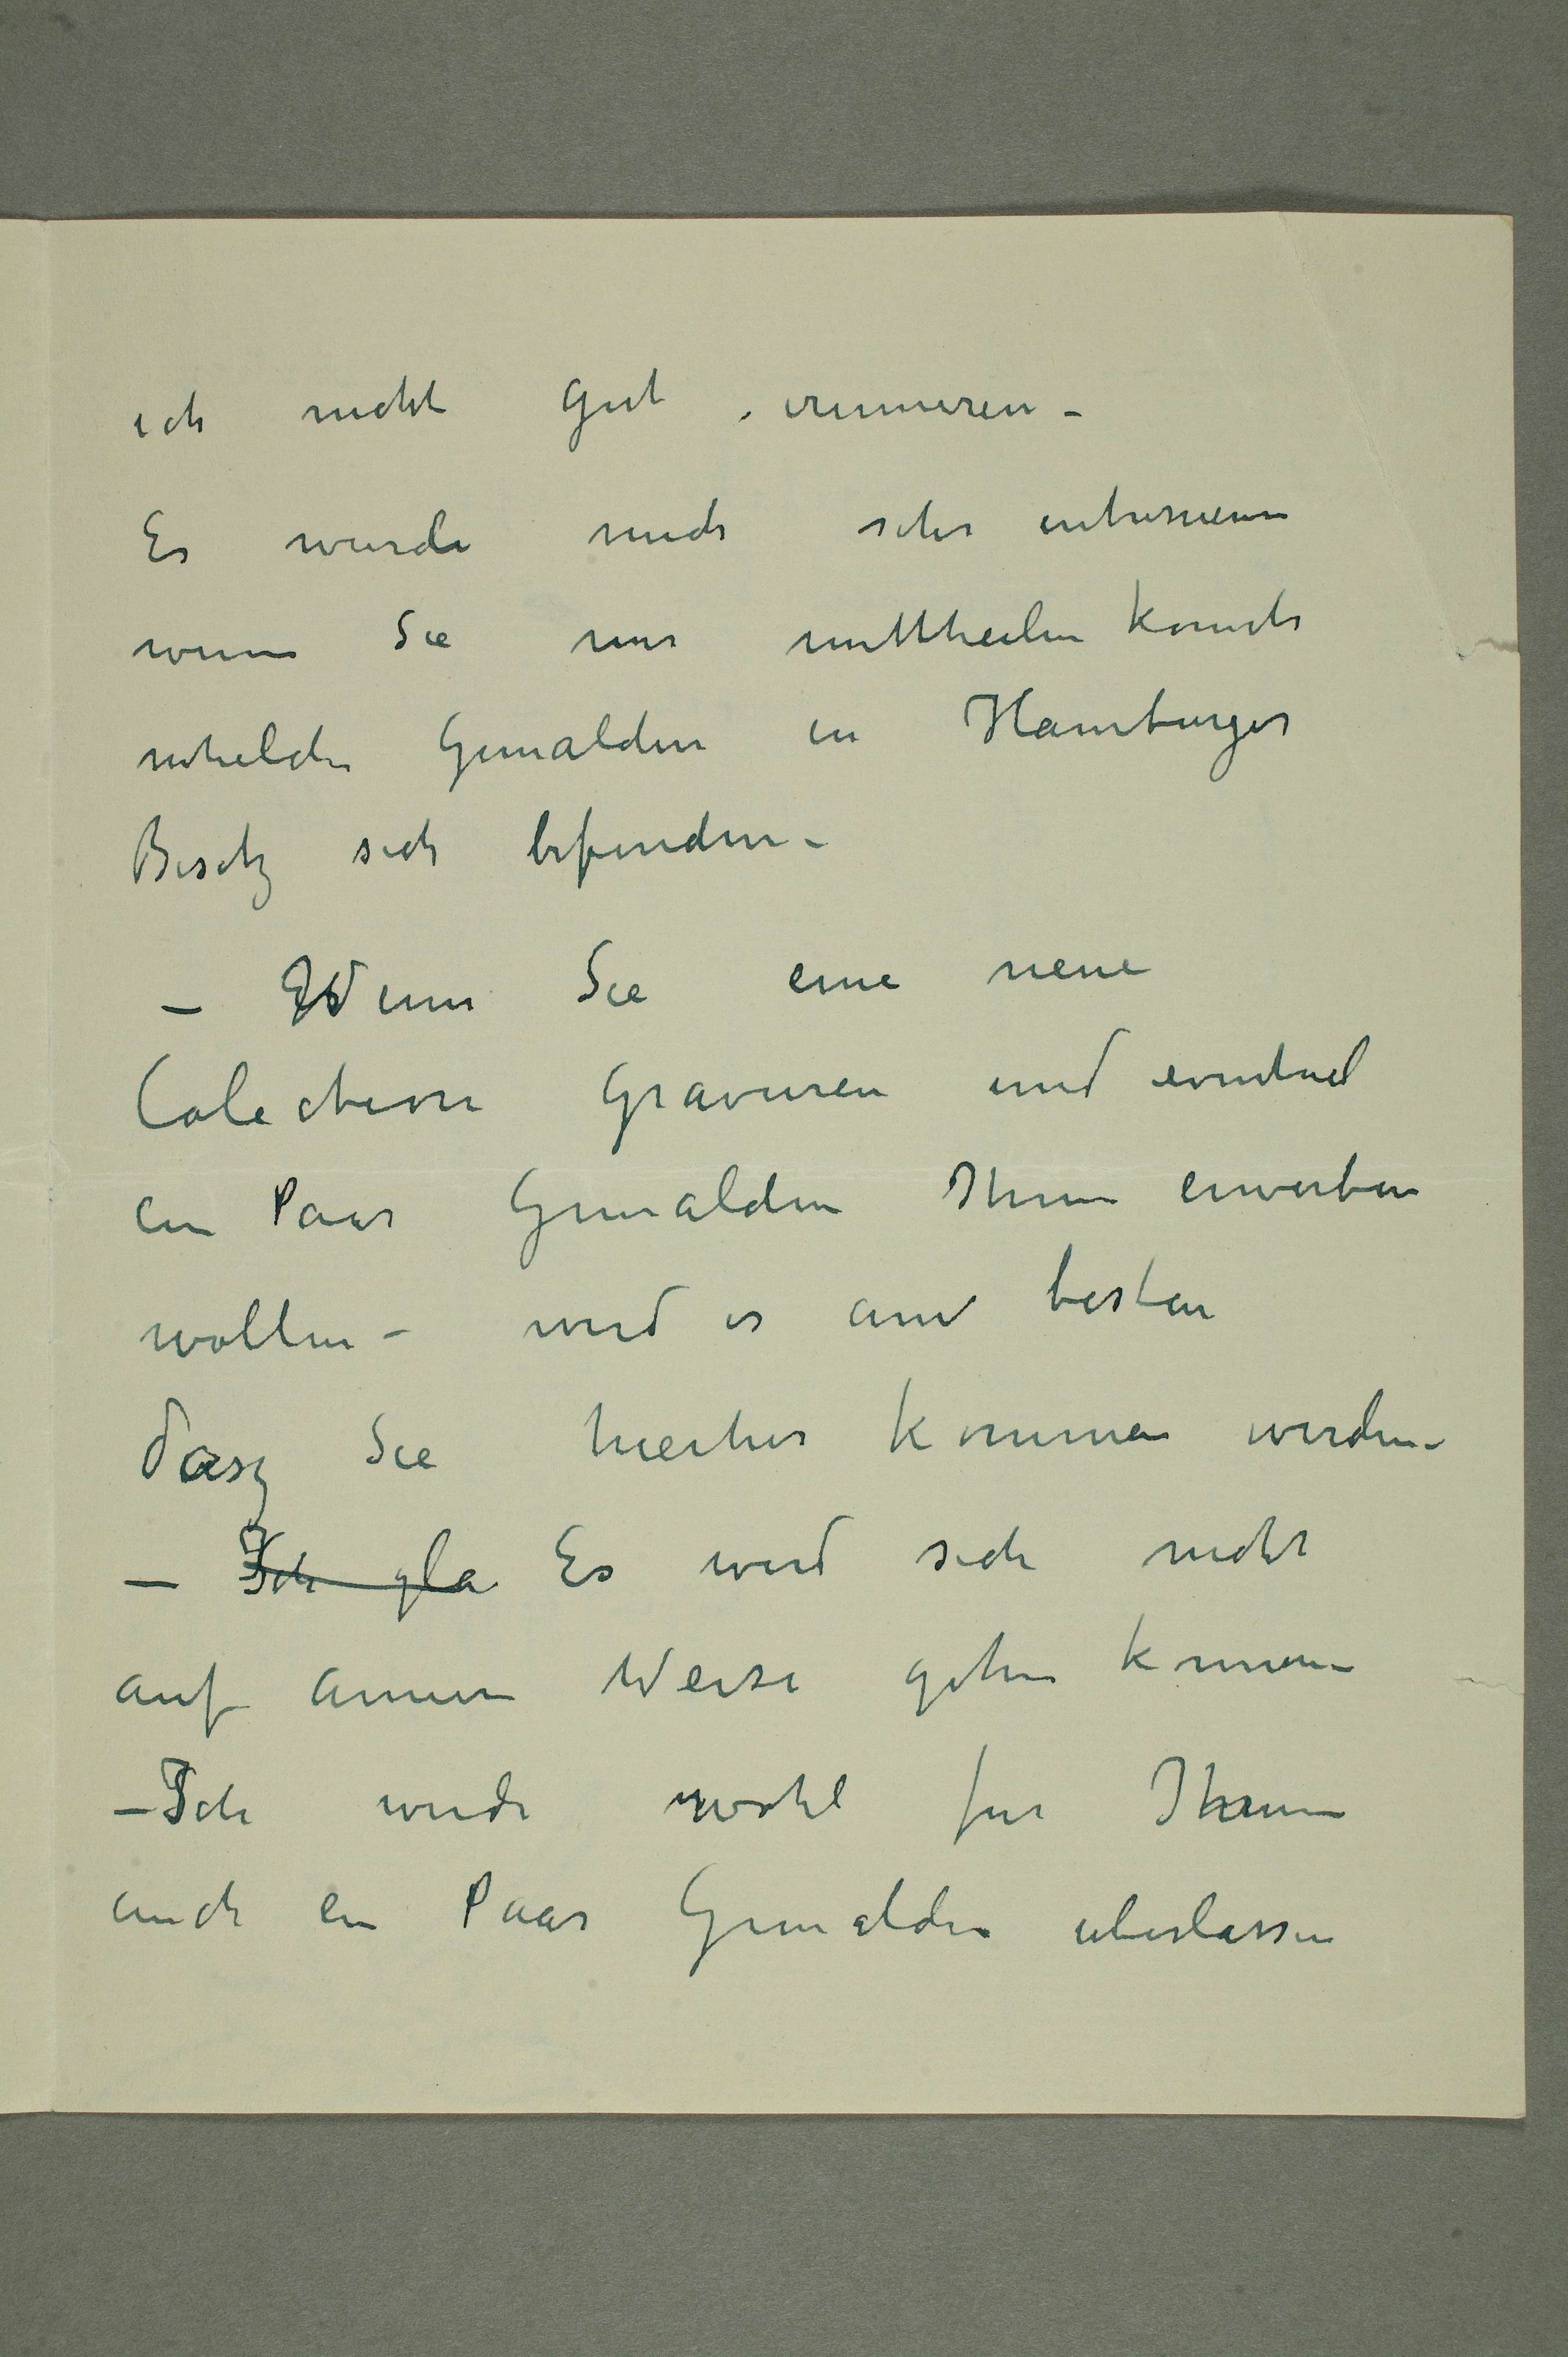 ich nicht gut erinneren –
Es wurde mich sehr interesieren
wenn Sie mir mittheilen konnte
whelche Gemälden in Hamburger
Besitz sich befinden –
– Wenn Sie eine neue
Colection Gravuren und eventuel
ein Paar Gemalden Ihnen erwerben
wollen – wird es am besten
dasz Sie hierher kommen werden –
– Ich gla Es wird sich nicht
auf annen Weise gehen konnen –
– Ich werde wohl fur Ihnen
auch ein Paar Gemalden uberlassen